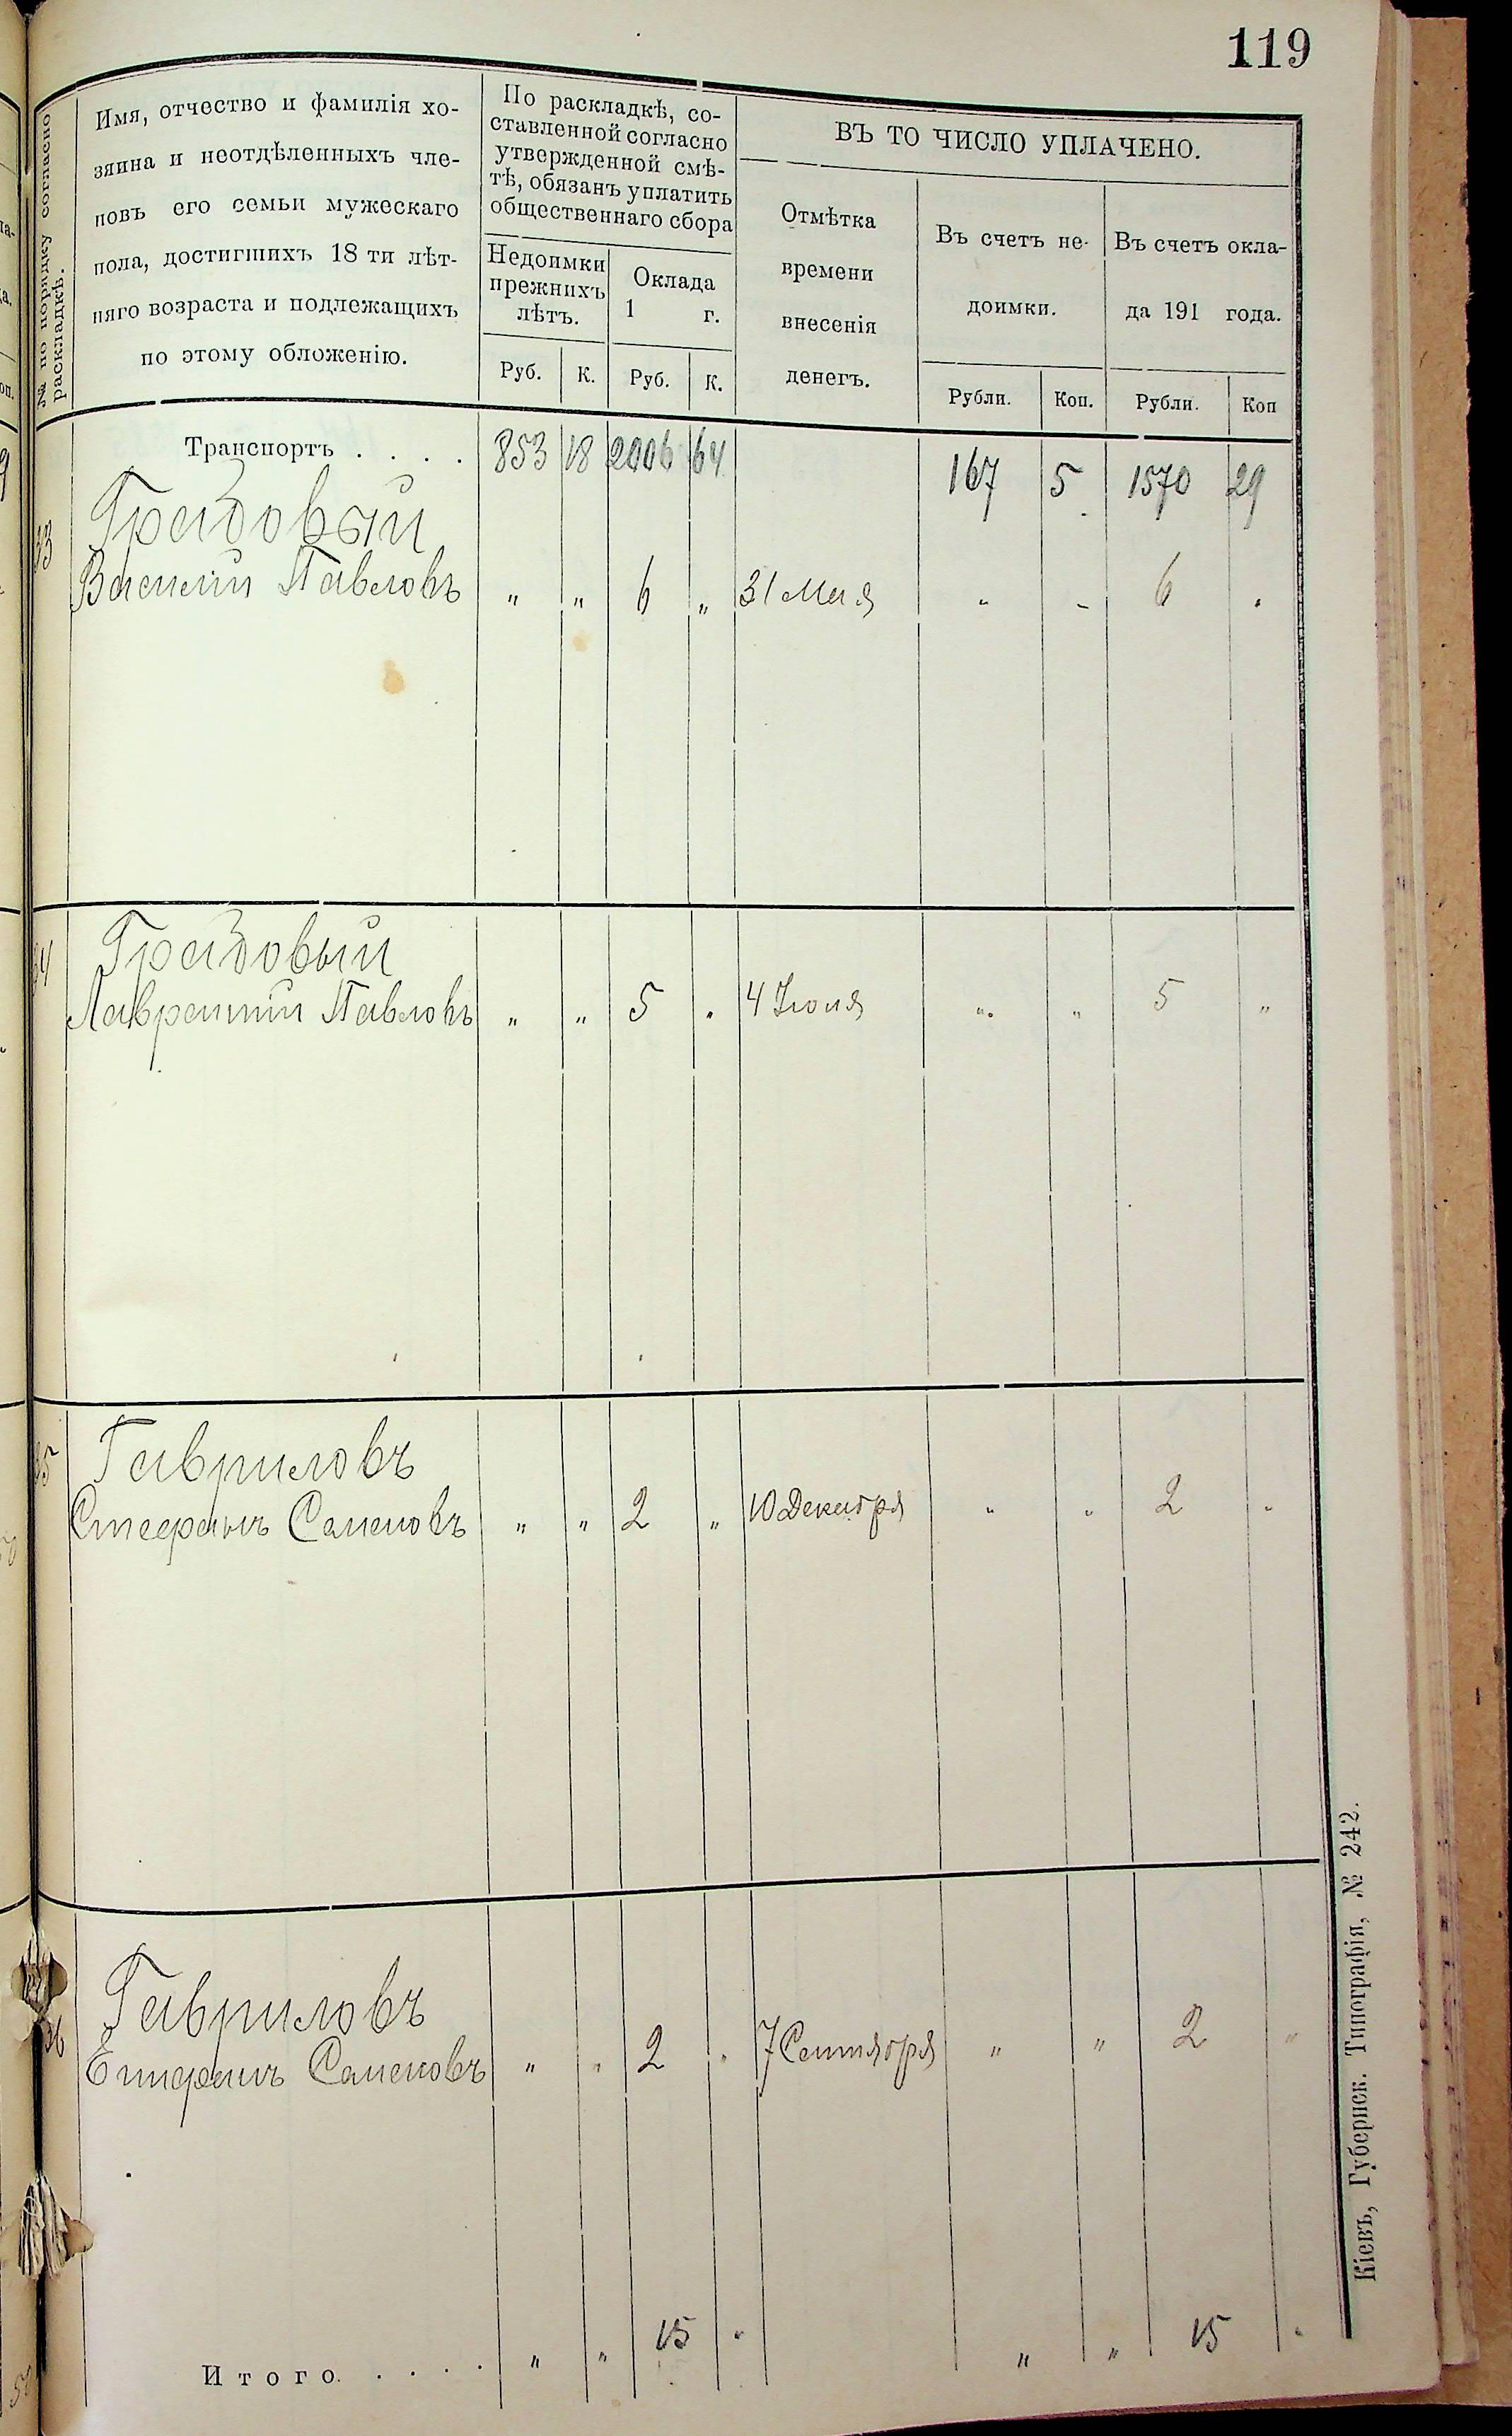 119
№ по порядку согласно
раскладкѣ.
Имя, отчество и фамилія хо-
зяина и неотдѣленныхъ чле-
новъ его семьи мужескаго
пола, достигшихъ 18 ти лѣт-
няго возраста и подлежащихъ
по этому обложенію.
По раскладкѣ, со-
ставленной согласно
утвержденной смѣ-
тѣ, обязанъ уплатить
общественнаго сбора
Недоимки
прежнихъ
лѣтъ.
Оклада
1 г.
Руб. К. Руб. К.
ВЪ ТО ЧИСЛО УПЛАЧЕНО.
Отмѣтка
времени
внесенія
денегъ.
Въ счетъ не-
доимки.
Въ счетъ окла-
да 191 года.
Рубли. Коп. Рубли. Коп
Транспортъ . . . . 853 18 2006 64 167 5 1570 29
Градовый
Василій Павловъ " " 6 " 31 Мая " " 6 "
Градовый
Лаврентій Павловъ " " 5 " 4 Іюля " " 5 "
Гавриловъ
Стефанъ Семеновъ " " 2 " 10 Декабря " " 2 "
Гавриловъ
Семеновъ " " 2 " 7 Сентября " " 2 "
Итого. . . . . " " 15 " " " 15 "
Кіевъ, Губернск. Типографія, № 242.